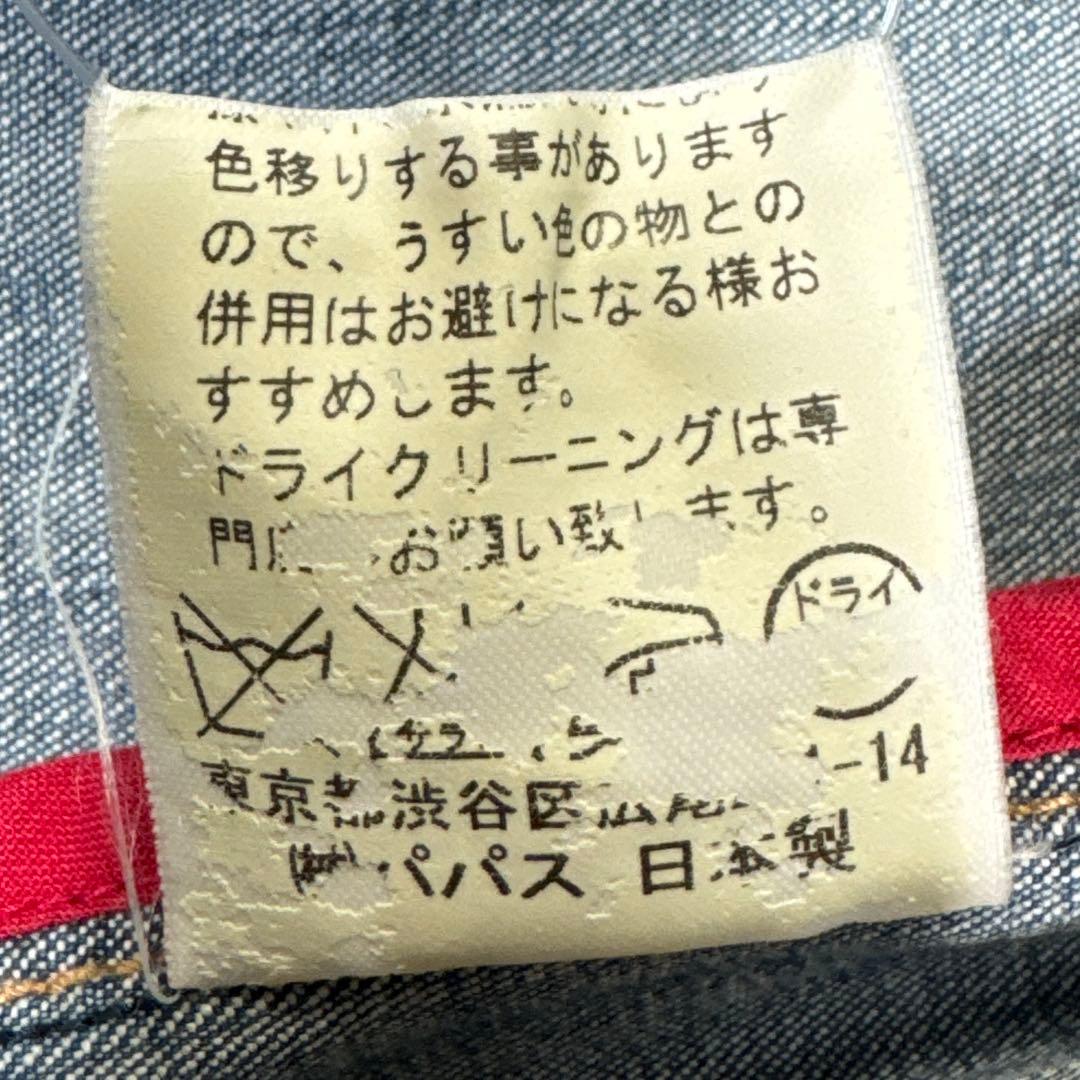 色移りする事があります
ので、うすい色の物との
併用はお避けになる様お
すすめします。
ドライクリーニングは専
門 お願い致します。
ドライ
東京都渋谷区広尾 -14
パパス 日本製